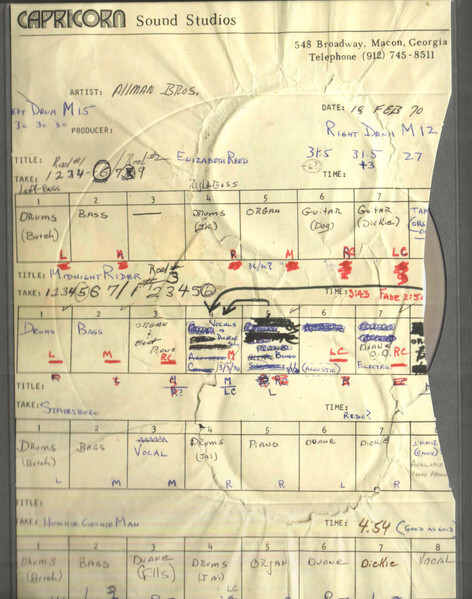 CAPRICORN Sound Studios
548 Broadway, Macon, Georgia
Telephone (912) 745-8511
ARTIST: Allman Bros.
DATE: 18 FEB 70
Drum M15
30 30 30
PRODUCER:
Right Drum M12
31.5 31.5 27
+3
TITLE: Reel #1 Reel #2 Elizabeth Reed
TAKE: 1 2 3 4 - 6 / 7 9
TIME:
1 2 3 4 5 6 7
Drums Bass — Drums Organ Guitar Guitar
(Butch) (Jai) (Dog) (Dickie)
L M R M RC LC
TITLE: Midnight Rider Reel # 3
TAKE: 1 2 3 4 5 6 7 / 1 2 3 4 5 6
TIME: 3:43 Fade 2:5
1 2 3 4 5 6 7
Drums Bass Organ Vocals
Piano Bongo (Acoustic) Electric
L M RC M LC RC
3/3/70
R? LC L
TITLE:
TAKE: Stairsburg
TIME: Redo?
1 2 3 4 5 6 7
Drums Bass Vocal Drums Piano Duane Dickie
(Butch) (Jai) (Only)
L M M R R L
TITLE:
TAKE: Hoochie Coochie Man
TIME: 4:54 (Good as Gold)
1 2 3 4 5 6 7 8
Drums Bass Duane Drums Organ Duane Dickie Vocal
(Butch) (Fills) (Jai)